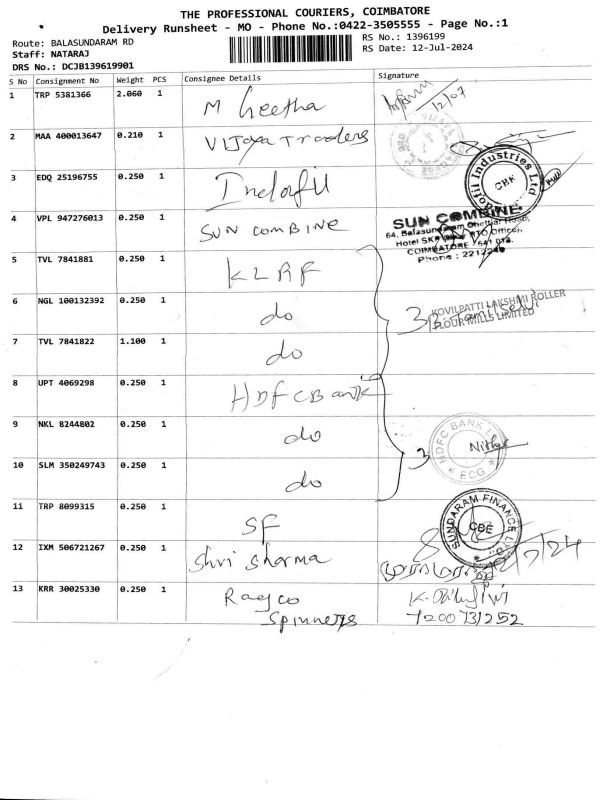 THE PROFESSIONAL COURIERS, COIMBATORE
Delivery Runsheet - MO - Phone No.:0422-3505555 - Page No.:1
Route: BALASUNDARAM RD
RS No.: 1396199
Staff: NATARAJ
RS Date: 12-Jul-2024
DRS No.: DCJB139619901
S No Consignment No Weight PCS Consignee Details Signature
1 TRP 5381366 2.060 1 M Geetha 12/07
2 MAA 400013647 0.210 1 Vijaya Traders
3 EDQ 25196755 0.250 1 Indofil
Industries Ltd
CBE
4 VPL 947276013 0.250 1 SUN COMBINE
SUN COMBINE
64, Balasundaram Chettiar Road,
COIMBATORE - 641 018.
Phone : 2212240
5 TVL 7841881 0.250 1 KLRF
6 NGL 100132392 0.250 1 do 3
KOVILPATTI LAKSHMI ROLLER
FLOUR MILLS LIMITED
7 TVL 7841822 1.100 1 do
8 UPT 4069298 0.250 1 HDFC Bank
9 NKL 8244802 0.250 1 do 3
HDFC BANK
10 SLM 350249743 0.250 1 do
11 TRP 8099315 0.250 1 SF
SUNDARAM FINANCE LTD
CBE
12 IXM 506721267 0.250 1 Shri Sharma
13 KRR 30025330 0.250 1 Ragco
Spinners